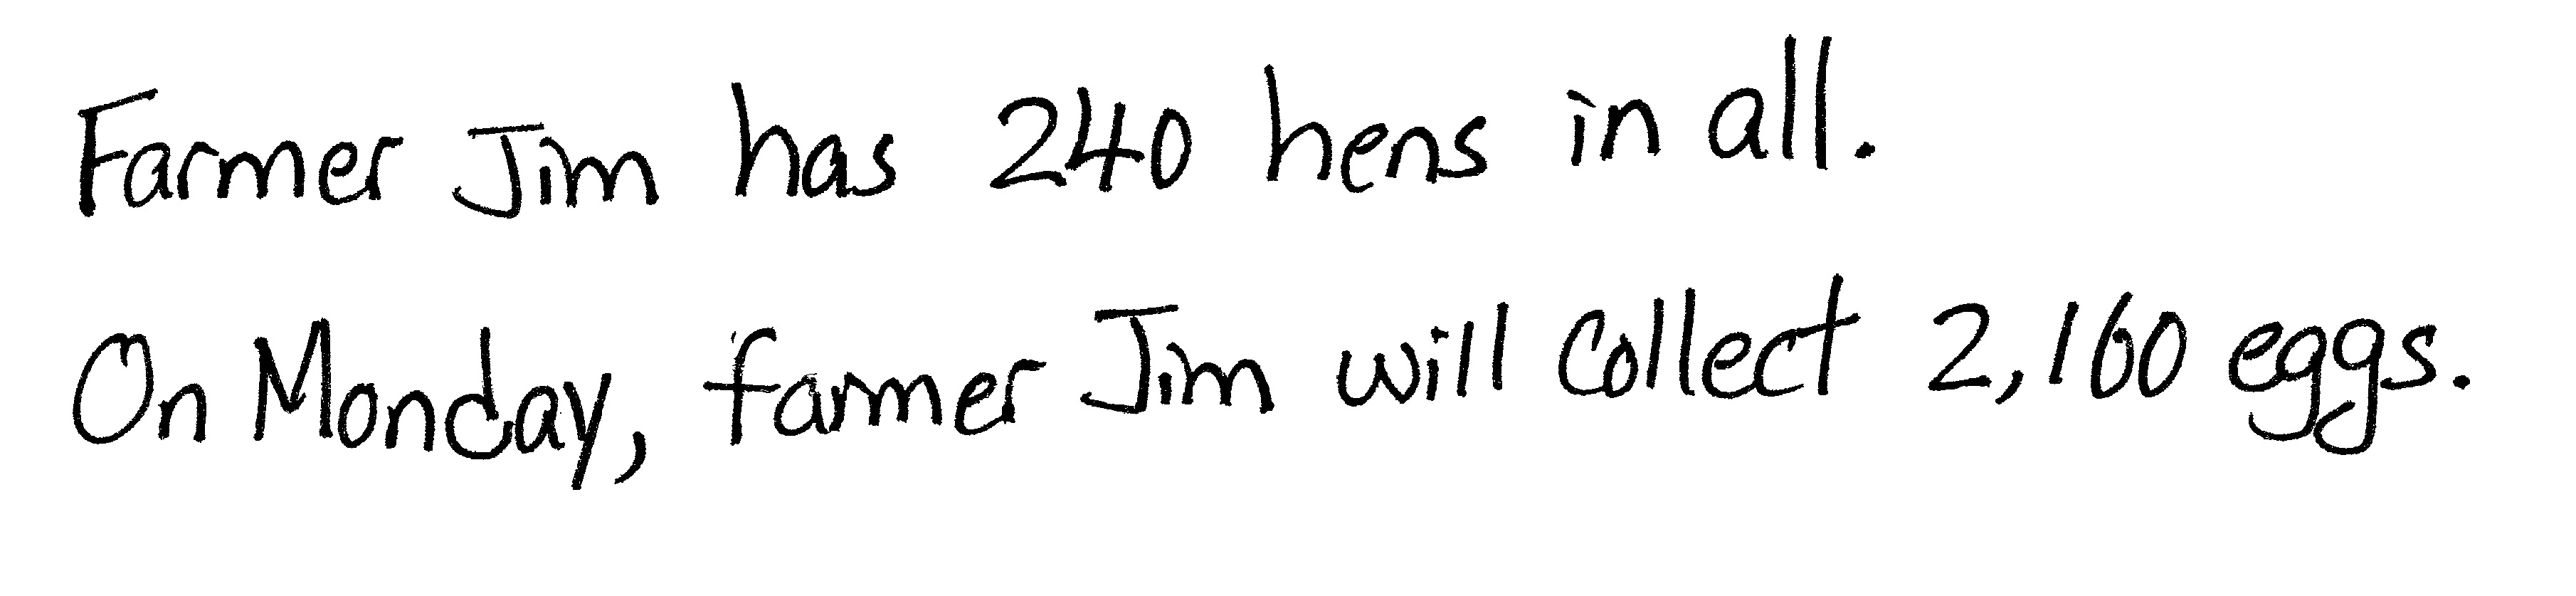 Farmer Jim has 240 hens in all.
On Monday, farmer Jim will collect 2,160 eggs.